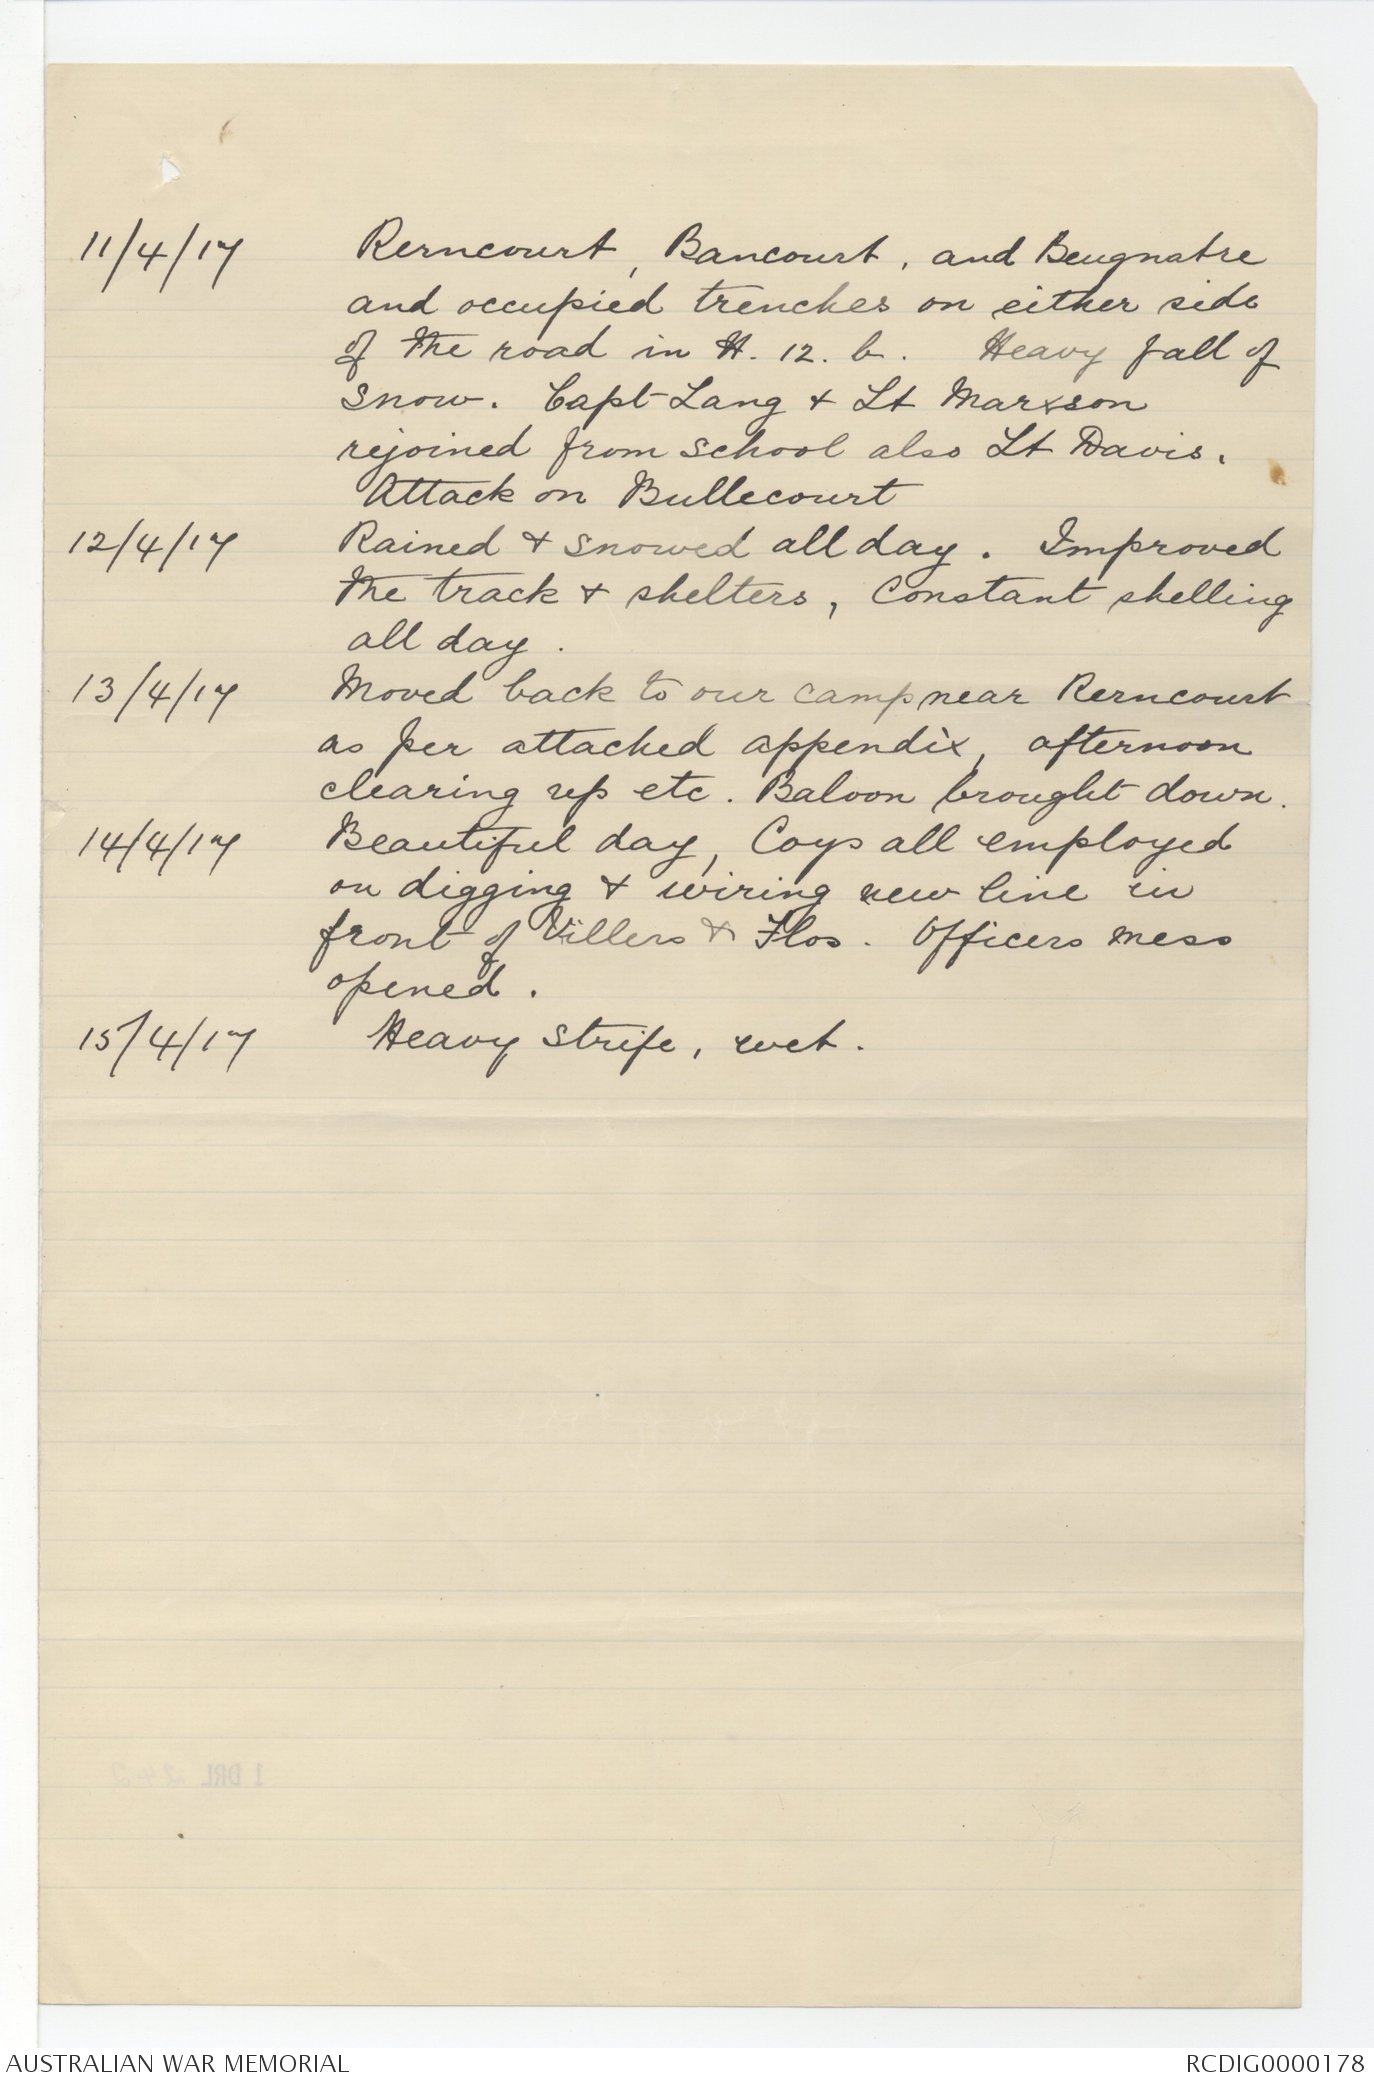 11/4/17 Rerncourt, Bancourt, and Beugnatre
and occupied trenches on either side
of the road in H. 12. b. Heavy fall of
snow. Capt Lang & Lt Marxson
rejoined from school also Lt Davis.
Attack on Bullecourt
12/4/17 Rained & snowed all day. Improved
the track & shelters, Constant shelling
all day.
13/4/17 Moved back to our camp near Rerncourt
as per attached appendix, afternoon
clearing up etc. Baloon brought down.
14/4/17 Beautiful day, Coys all employed
on digging & wiring new line in
front of Villers & Flos. Officers mess
opened.
15/4/17 Heavy strife, wet.
1 DRL 
AUSTRALIAN WAR MEMORIAL
RCDIG0000178